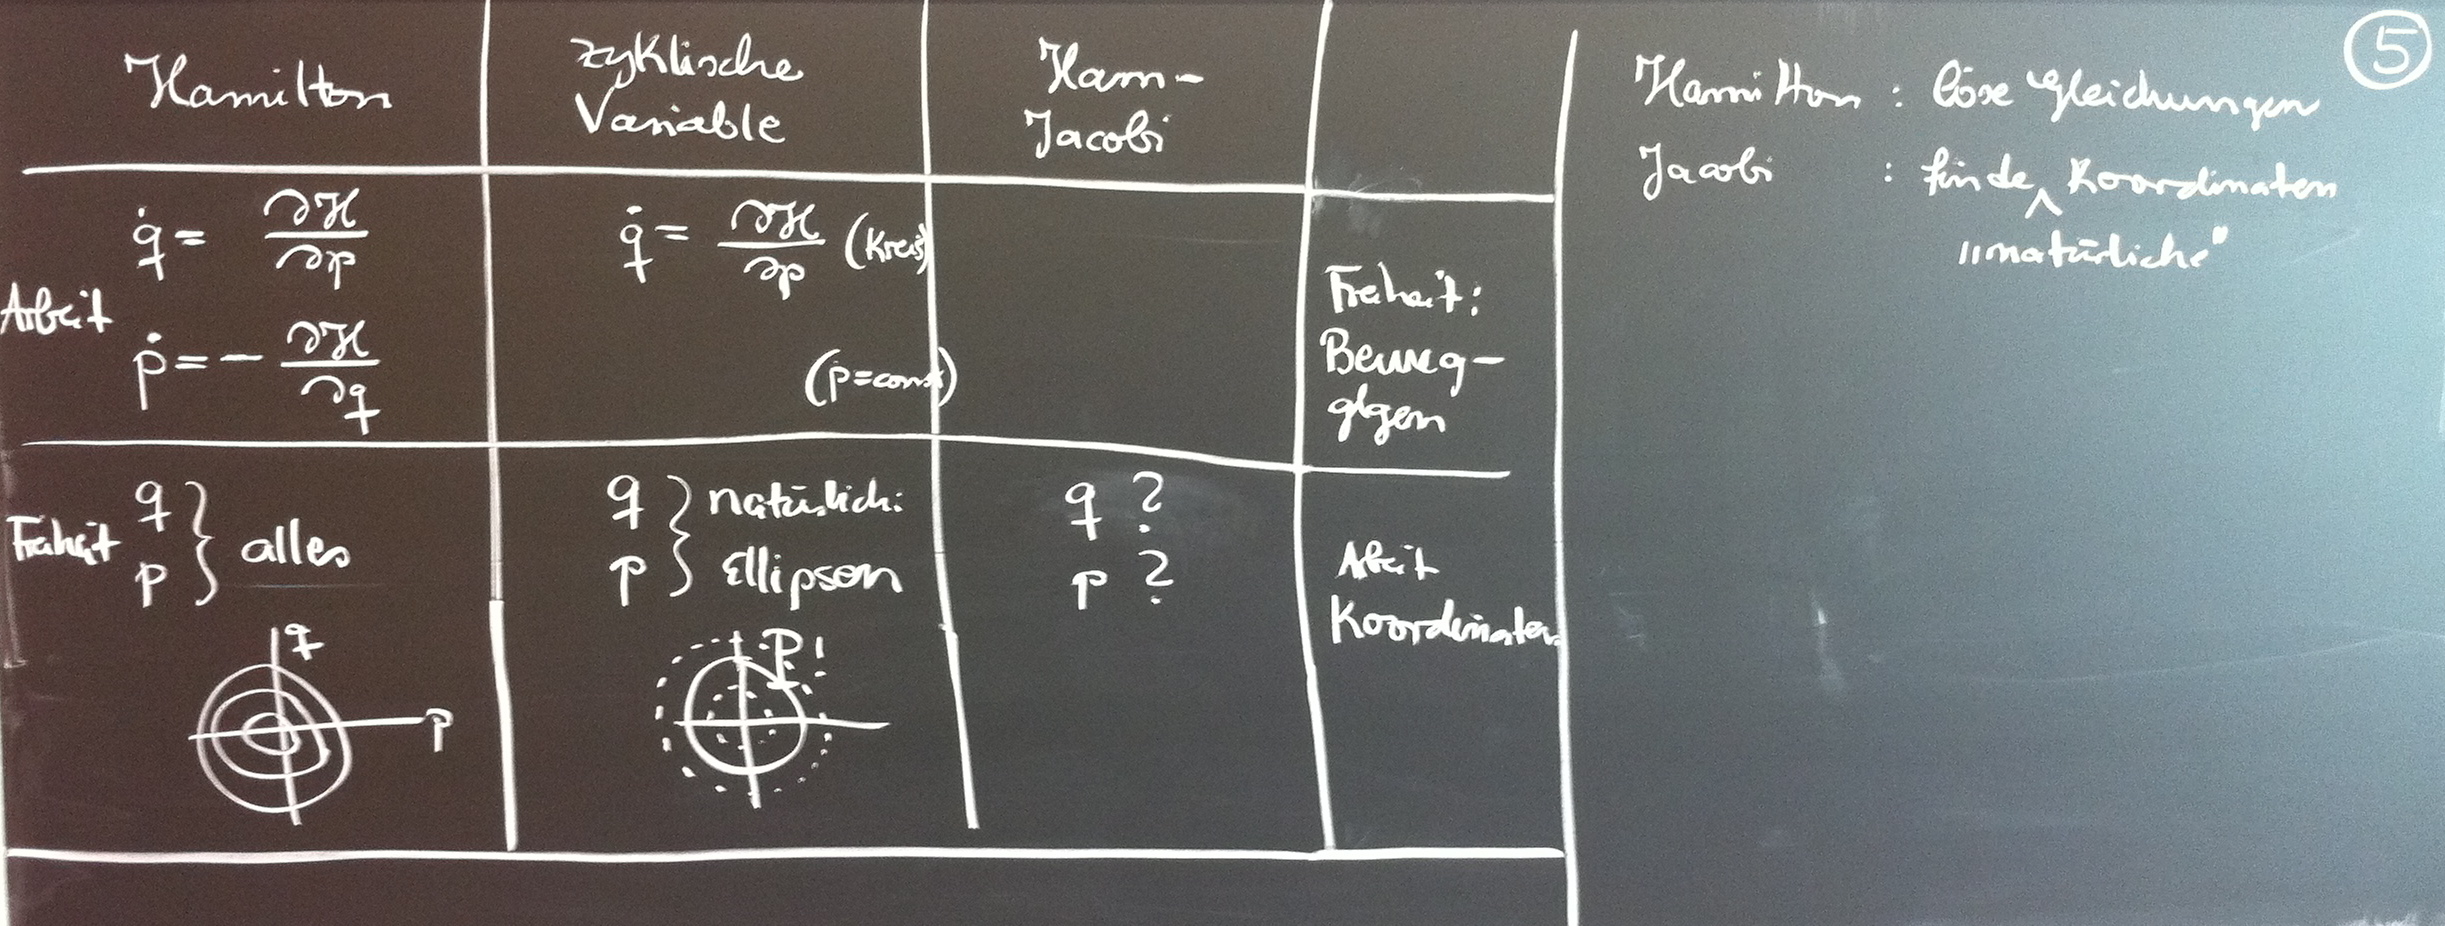 Hamilton
zyklische
Variable
Ham-
Jacobi
Arbeit
q̇ = ∂H/∂p
ṗ = - ∂H/∂q
q̇ = ∂H/∂p (Kreis)
(p=const)
Freiheit:
Beweg-
glgen
Freiheit
q
p
} alles
q
p
} natürlich:
Ellipsen
q ?
p ?
Arbeit
Koordinaten
q
p
P!
5
Hamilton : löse Gleichungen
Jacobi : finde ^ Koordinaten
"natürliche"